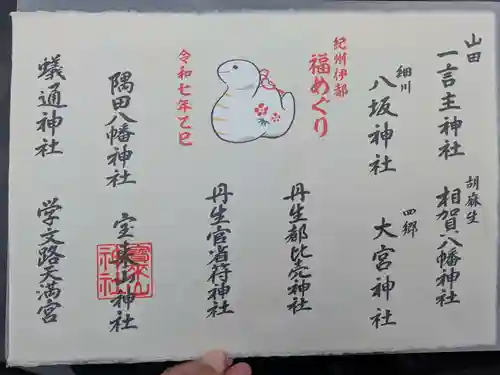 山田
一言主神社
胡麻生
相賀八幡神社
細川
八坂神社
四郷
大宮神社
紀州伊都
福めぐり
丹生都比売神社
丹生官省符神社
令和七年乙巳
隅田八幡神社
宝来山神社
蟻通神社
学文路天満宮